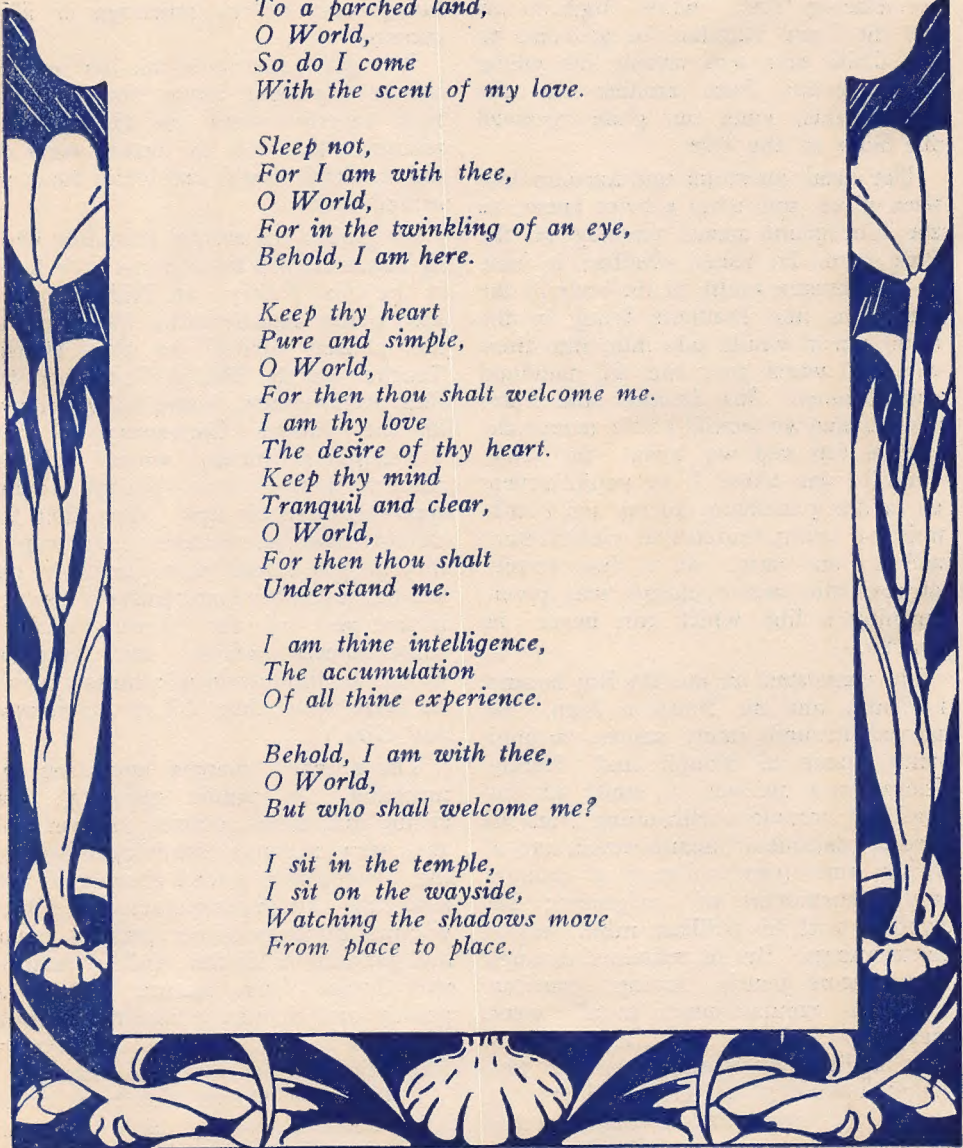 To a parched land,
O World,
So do I come
With the scent of my love.
Sleep not,
For I am with thee,
O World,
For in the twinkling of an eye,
Behold, I am here.
Keep thy heart
Pure and simple,
O World,
For then thou shalt welcome me.
I am thy love
The desire of thy heart.
Keep thy mind
Tranquil and clear,
O World,
For then thou shalt
Understand me.
I am thine intelligence,
The accumulation
Of all thine experience.
Behold, I am with thee,
O World,
But who shall welcome me?
I sit in the temple,
I sit on the wayside,
Watching the shadows move
From place to place.